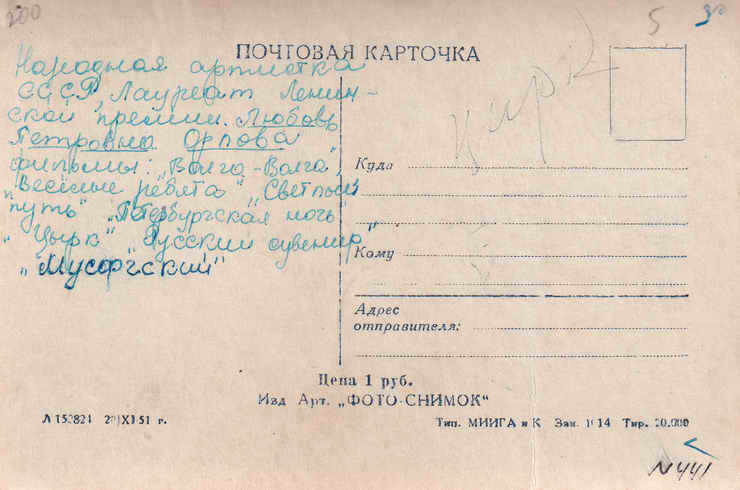 200
5
3
ПОЧТОВАЯ КАРТОЧКА
Народная артистка
СССР, Лауреат Ленин-
ской премии. Любовь
Петровна Орлова
фильмы: „Волга-Волга",
„Веселые ребята" „Светлый
путь" „Петербургская ночь"
„Цырк" „Русский сувенир"
„Мусоргский"
Куда
Кому
Адрес
отправителя:
Цена 1 руб.
Изд Арт. „ФОТО-СНИМОК"
XI 51 г.
Тип. МИИГА и К Зак. Тир. 20.000
N441